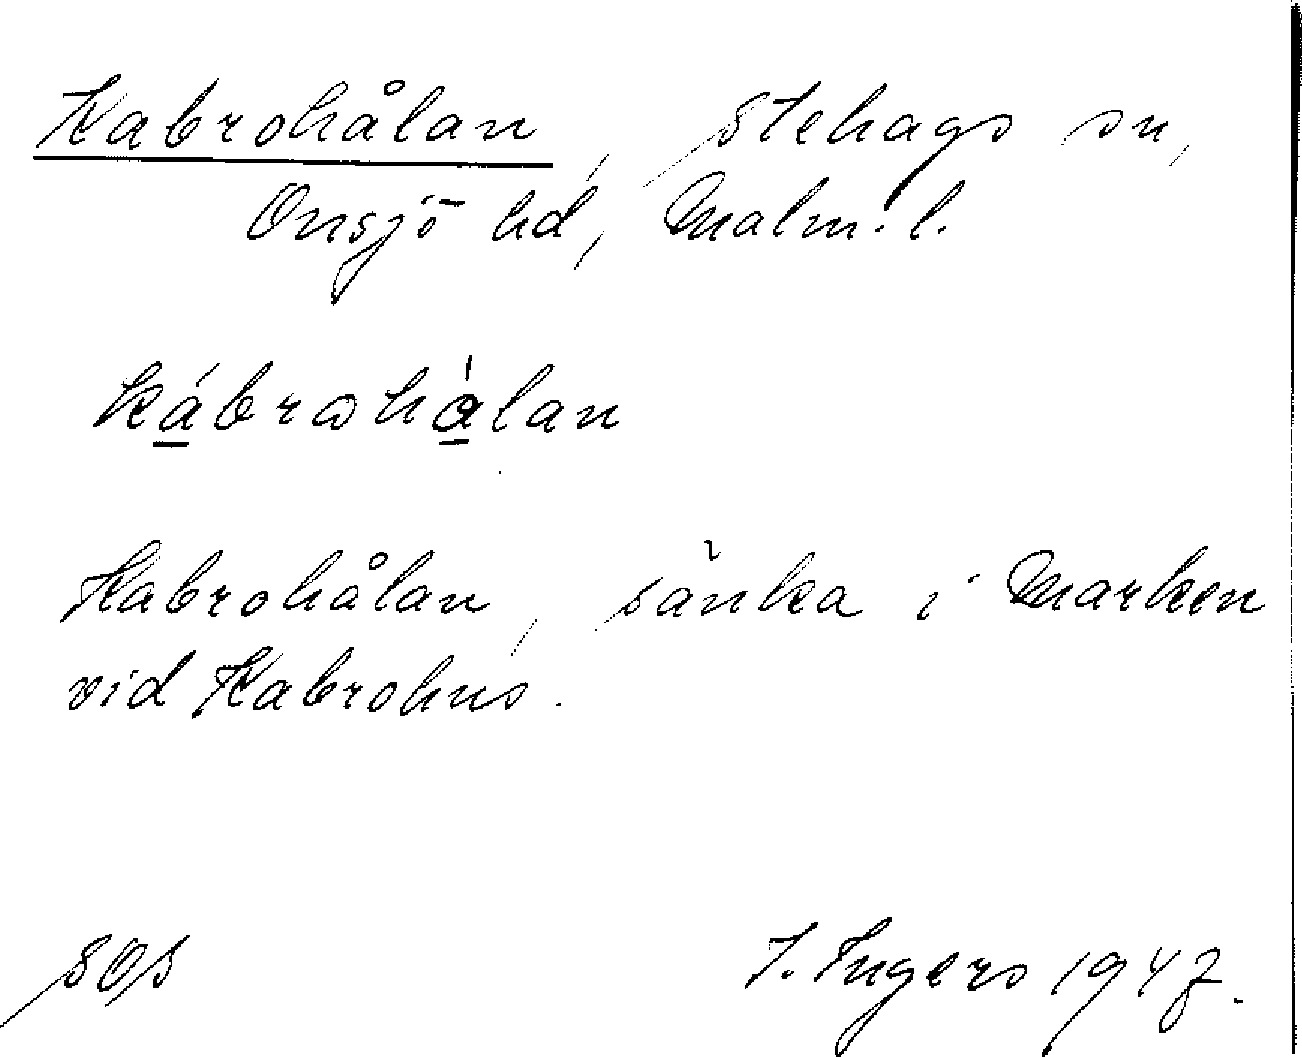 Kabrohålan, Stehags sn,
Onsjö hd, Malm. l.
kábrωhὰlan
Kabrohålan, sänka i marken
vid Kabrohus.
SOS
I. Ingers 1947.